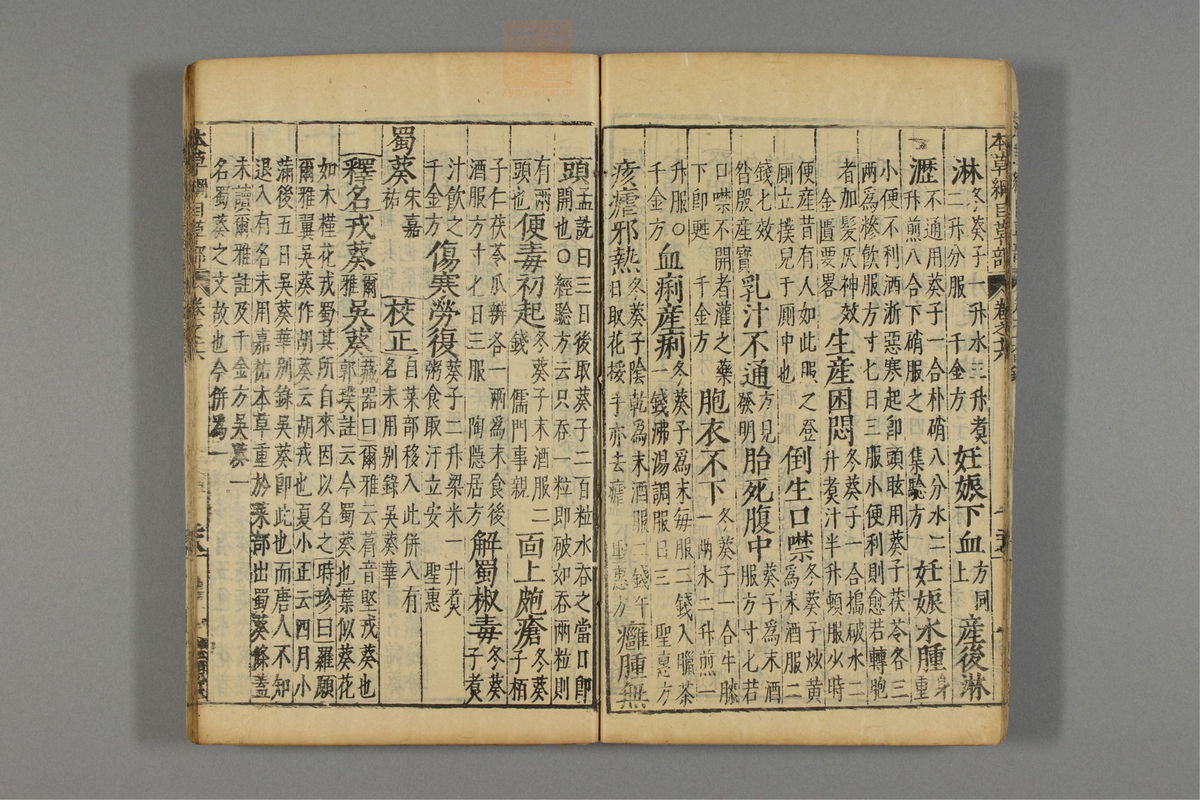 本草綱目草部 卷之十六
淋冬葵子一升水三升煮
二升分服 千金方妊娠下血方同
上產後淋
瀝不通用葵子一合朴硝八分水二
升煎八合下硝服之 集驗方妊娠水腫身
重
小便不利洒淅惡寒起即頭眩用葵子茯苓各三
兩爲糝飲服方寸七日三服小便利則愈若轉胞
者加髮灰神效
金匱要畧生產困悶冬葵子一合搗破水二
升煮汁半升頓服少時
便產昔有人如此服之登
厠立撲兒于厠中也倒生口噤冬葵子炒黃
爲末酒服二
錢七效
昝殷產寶乳汁不通方見
發明胎死腹中葵子爲末酒
服方寸七若
口噤不開者灌之藥
下即甦 千金方胞衣不下冬葵子一合牛膝
一兩水二升煎一
升服〇
千金方血痢產痢冬葵子爲末每服二錢入臘茶
一錢沸湯調服日三 聖惠方
痎瘧邪熱冬葵子陰乾爲末酒服二錢午
日取花挼手亦去瘧 聖惠方癰腫無
頭孟詵曰三日後取葵子二百粒水吞之當日即
開也〇經驗方云只吞一粒即破如吞兩粒則
有兩
頭也便毒初起冬葵子末酒服二
錢 儒門事親面上皰瘡冬葵
子栢
子仁茯苓瓜瓣各一兩爲末食後
酒服方寸七日三服 陶隱居方解蜀椒毒冬葵
子煮
汁飲之
千金方傷寒勞復葵子二升梁米一升煮
粥食取汗立安 聖惠
蜀葵宋嘉
祐校正自菜部移入此併入有
名未用別錄吳葵華
釋名戎葵爾
雅吳葵藏器曰爾雅云菺音堅戎葵也
郭璞註云今蜀葵也葉似葵花
如木槿花戎蜀其所自來因以名之時珍曰羅願
爾雅翼吳葵作胡葵云胡戎也夏小正云四月小
滿後五日吳葵華別錄吳葵即此也而唐人不知
退入有名未用嘉祐本草重於菜部出蜀葵條蓋
未讀爾雅註及千金方吳葵一
名蜀葵之文故也今併爲一
本草綱目草部 卷之十六